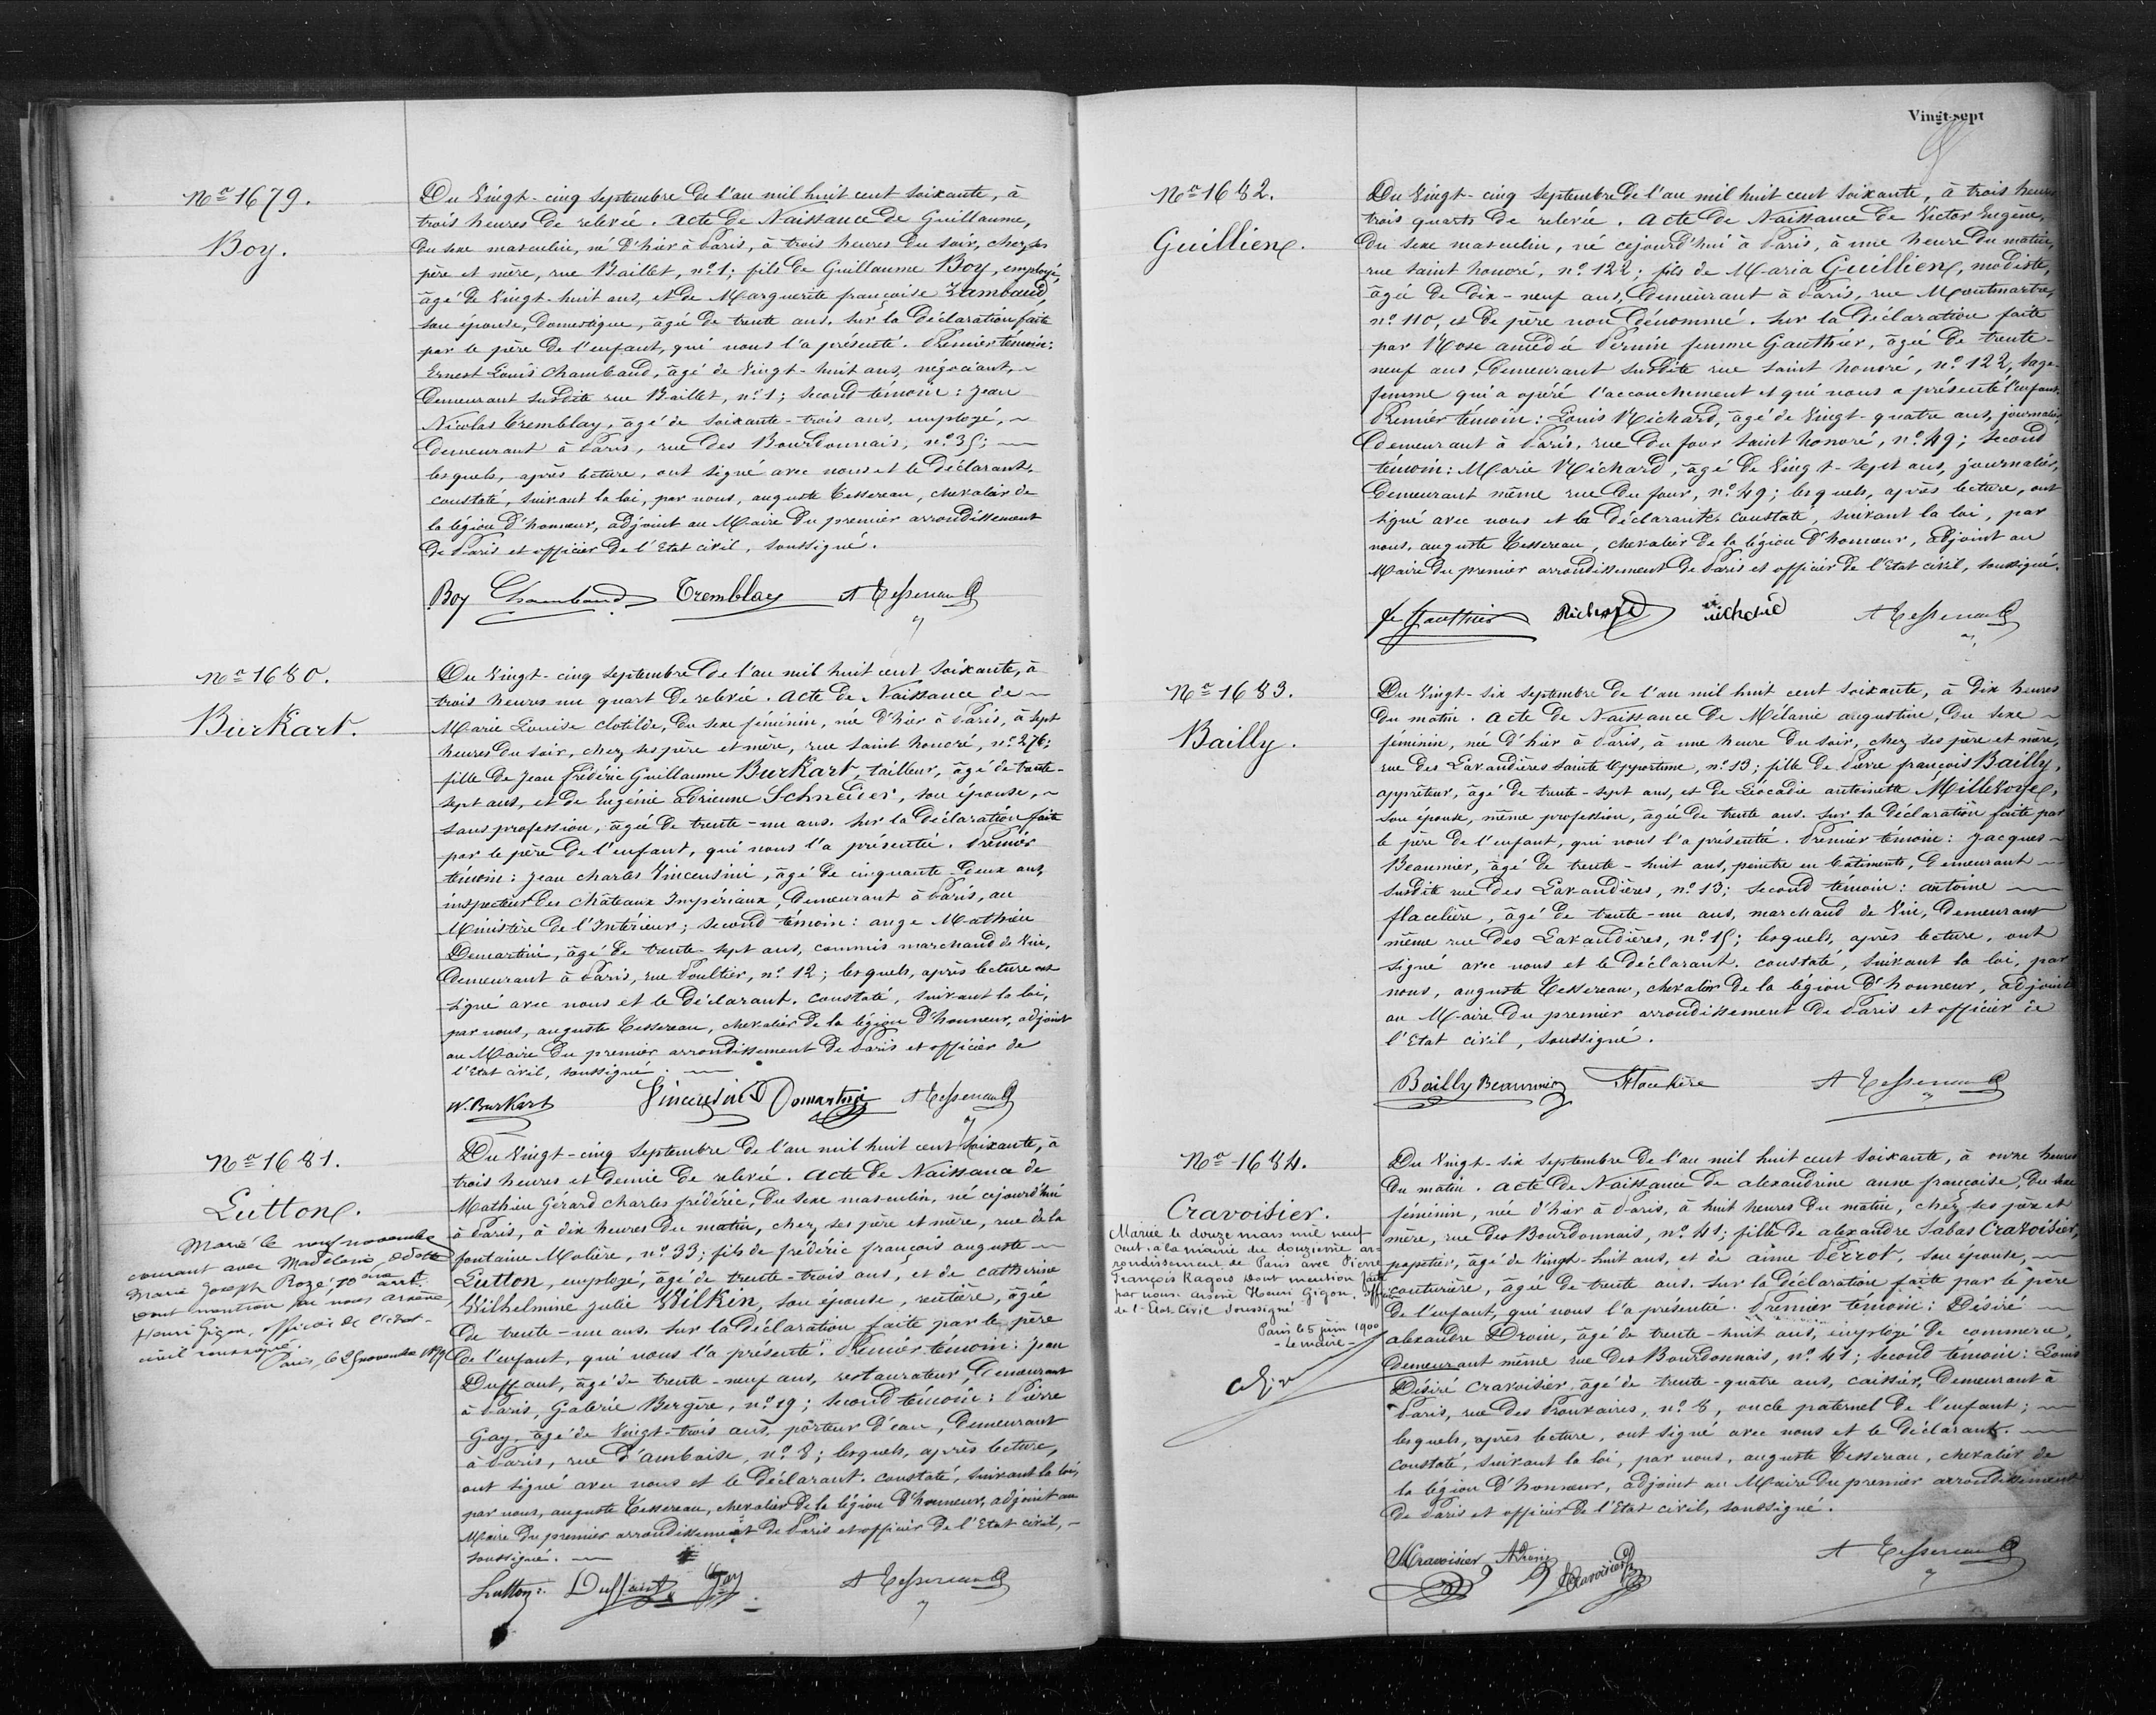 No 1679.
Boy.
Du Vingt-cinq Septembre de l'an mil huit cent soixante, à
trois heures de relevée. acte de Naissance de Guillaume,
du sexe masculin, né d'hier à Paris, à trois heures du soir, chez ses
père et mère, rue Baillet, no 1; fils de Guillaume Boy, employé,
âgé de Vingt-huit ans, et de Marguerite françoise
son épouse, Domestique, âgée de trente ans. Sur la déclaration faite
par le père de l'enfant, qui nous l'a présenté. Premier témoin:
Ernest Louis Chambaud, âgé de Vingt-huit ans, négociant,
Demeurant susdite rue Baillet, no 1; second témoin: Jean
Nicolas Tremblay, âgé de soixante-trois ans, employé,
Demeurant à Paris, rue des Bourdonnais, no 35;
lesquels, après lecture, ont signé avec nous et le Déclarant.
constaté, suivant la loi, par nous, auguste Tessereau, chevalier de
la légion d'honneur, adjoint au Maire du premier arrondissement
de Paris et officier de l'Etat civil, soussigné.
Boy Chambaud Tremblay A Tessereau
No 1680.
Burkart.
Du Vingt-cinq Septembre de l'an mil huit cent soixante, à
trois heures un quart de relevée. acte de Naissance de
Marie Louise Clotilde, du sexe féminin, née d'hier à Paris, à sept
heures du soir, chez ses père et mère, rue saint honoré, no 276;
fille de Jean frédéric Guillaume Burkart, tailleur, âgé de trente-
sept ans, et de Eugénie adrienne Schneider, son épouse,
sans profession, âgée de trente-un ans. Sur la Déclaration faite
par le père de l'enfant, qui nous l'a présentée. Premier
témoin: Jean charles Vincensini, âgé de cinquante-deux ans,
inspecteur des châteaux Impériaux, Demeurant à Paris, au
Ministère de l'Intérieur; second témoin: ange Mathieu
Demartini, âgé de trente-sept ans, commis marchand de Vin,
Demeurant à Paris, rue Poultier, no 12; lesquels, après lecture ont
signé avec nous et le Déclarant. constaté, suivant la loi,
par nous, auguste Tessereau, chevalier de la légion d'honneur, adjoint
au Maire du premier arrondissement de Paris et officier de
l'Etat civil, soussigné.
W. Burkart Vincensini Demartini A Tessereau
No 1681.
Lutton.
Marié le neuf novembre
courant avec Madeleine, Odette
Marie Joseph Rozé, 10eme arrt.
Dont mention par nous Arsène
Henri Gigon, officier de l'état-
civil soussigné.
Paris, le 25 novembre
Du Vingt-cinq Septembre de l'an mil huit cent soixante, à
trois heures et demie de relevée. acte de Naissance de
Mathieu Gérard charles frédéric, du sexe masculin, né cejourd'hui
à Paris, à dix heures du matin, chez ses père et mère, rue de la
fontaine Molière, no 33; fils de frédéric françois auguste
Lutton, employé, âgé de trente-trois ans, et de catherine
Wilhelmine Julie Wilkin, son épouse, rentière, âgée
de trente-un ans. Sur la déclaration faite par le père
de l'enfant, qui nous l'a présenté. Premier témoin: Jean
Duffaut, âgé de trente-neuf ans, restaurateur, Demeurant
à Paris, Galerie Bergère, no 19; second témoin: Pierre
Gay, âgé de Vingt-trois ans, porteur d'eau, Demeurant
à Paris, rue d'amboise, no 8; lesquels, après lecture,
ont signé avec nous et le Déclarant. constaté, suivant la loi,
par nous, auguste Tessereau, chevalier de la légion d'honneur, adjoint au
Maire du premier arrondissement de Paris et officier de l'Etat civil,
soussigné.
Lutton Duffaut Gay A Tessereau
Vingt-sept
No 1682.
Guillien.
Du Vingt-cinq Septembre de l'an mil huit cent soixante, à trois heures
trois quarts de relevée. acte de Naissance de Victor Eugène,
du sexe masculin, né cejourd'hui à Paris, à une heure du matin,
rue saint honoré, no 122; fils de Maria Guillien, modiste,
âgée de dix-neuf ans, Demeurant à Paris, rue Montmartre,
no 110, et de père non dénommé. Sur la déclaration faite
par Rose amédée Pernin femme Gauthier, âgée de trente-
neuf ans, Demeurant susdite rue saint honoré, no 122, sage-
femme qui a opéré l'accouchement et qui nous a présenté l'enfant.
Premier témoin: Louis Richard, âgé de Vingt-quatre ans, journalier,
Demeurant à Paris, rue du four saint honoré, no 49; second
témoin: Marie Richard, âgé de Vingt-sept ans, journalier,
Demeurant même rue du four, no 49; lesquels, après lecture, ont
signé avec nous et la Déclarante. constaté, suivant la loi, par
nous, auguste Tessereau, chevalier de la légion d'honneur, adjoint au
Maire du premier arrondissement de Paris et officier de l'Etat civil, soussigné.
fe Gauthier Richard richard A Tessereau
No 1683.
Bailly.
Du Vingt-six Septembre de l'an mil huit cent soixante, à dix heures
du matin. acte de Naissance de Mélanie augustine, du sexe
féminin, née d'hier à Paris, à une heure du soir, chez ses père et mère,
rue des Lavandières Sainte Opportune, no 13; fille de Pierre françois Bailly,
apprêteur, âgé de trente-sept ans, et de Léocadie antoinette Millevoye,
son épouse, même profession, âgée de trente ans. Sur la déclaration faite par
le père de l'enfant, qui nous l'a présentée. Premier témoin: Jacques
Beaumier, âgé de trente-huit ans, peintre en bâtiments, Demeurant
susdite rue des Lavandières, no 13; second témoin: antoine
flacelière, âgé de trente-un ans, marchand de Vin, Demeurant
même rue des Lavandières, no 15; lesquels, après lecture, ont
signé avec nous et le déclarant. constaté, suivant la loi, par
nous, auguste Tessereau, chevalier de la légion d'honneur, adjoint
au Maire du premier arrondissement de Paris et officier de
l'Etat civil, soussigné.
Bailly Beaumier A Tessereau
No 1684.
Cravoisier.
Mariée le douze mars mil neuf
cent à la mairie du douzième ar-
rondissement de Paris avec Pierre
François Ragois Dont mention faite
par nous Arsène Henri Gigon, officier
de l'Etat Civil Soussigné
Paris le 5 juin 1900
- Le maire -
Du Vingt-six Septembre de l'an mil huit cent soixante, à onze heures
du matin. acte de Naissance de alexandrine anne françoise, du sexe
féminin, née d'hier à Paris, à huit heures du matin, chez ses père et
mère, rue des Bourdonnais, no 41; fille de alexandre Sabas Cravoisier,
papetier, âgé de Vingt-huit ans, et de aimé Perrot, son épouse,
couturière, âgée de trente ans. Sur la déclaration faite par le père
de l'enfant, qui nous l'a présentée. Premier témoin: Désiré
alexandre Drouin, âgé de trente-huit ans, employé de commerce,
Demeurant même rue des Bourdonnais, no 41; second témoin: Louis
Désiré Cravoisier, âgé de trente-quatre ans, caissier, Demeurant à
Paris, rue des Prouvaires, no 8, oncle paternel de l'enfant;
lesquels, après lecture, ont signé avec nous et le déclarant.
constaté, suivant la loi, par nous, auguste Tessereau, chevalier de
la légion d'honneur, adjoint au Maire du premier arrondissement
de Paris et officier de l'Etat civil, soussigné.
Cravoisier Cravoisier A Tessereau